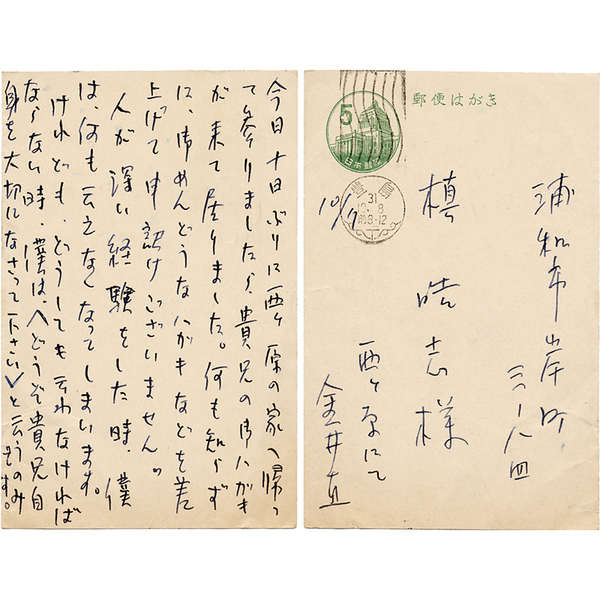 今日十日ぶりに西ヶ原の家へ帰っ
て参りましたら、貴兄の御ハガキ
が来て居りました。何も知らず
に、御めんどうなハガキなどを差
上げて申訳けございません。
人が深い経験をした時、僕
は、何も云えなくなってしまいます。
けれども、どうしても云わなければ
ならない時、僕は、「どうぞ貴兄自
身を大切になさって下さい」と云うのみです。
郵便はがき
5
日本郵便
豊島
31
10.8
后8-12
10/7
浦和市岸町
三ノ八四
槙晧志様
西ヶ原にて
金井直